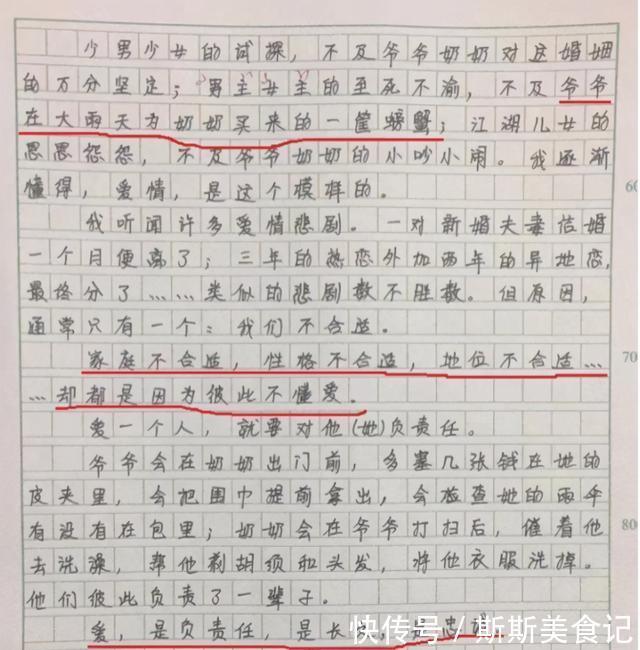 少男少女的试探，不及爷爷奶奶对这婚姻
的万分坚定；男主女主的至死不渝，不及爷爷
在大雨天为奶奶买来的一筐螃蟹；江湖儿女的
恩恩怨怨，不及爷爷奶奶的小吵小闹。我逐渐
懂得，爱情，是这个模样的。
60
我听闻许多爱情悲剧。一对新婚夫妻结婚
一个月便离了；三年的热恋外加两年的异地恋，
最终分了……类似的悲剧数不胜数。但原因，
通常只有一个：我们不合适。
家庭不合适，性格不合适，地位不合适…
70
…却都是因为彼此不懂爱。
爱一个人，就要对他(她)负责任。
爷爷会在奶奶出门前，多塞几张钱在她的
皮夹里，会把围巾提前拿出，会检查她的雨伞
有没有在包里；奶奶会在爷爷打扫后，催着他
80
去洗澡，帮他剃胡须和头发，将他衣服洗掉。
他们彼此负责了一辈子。
爱，是负责任，是长 是忠
快传号/斯斯美食记